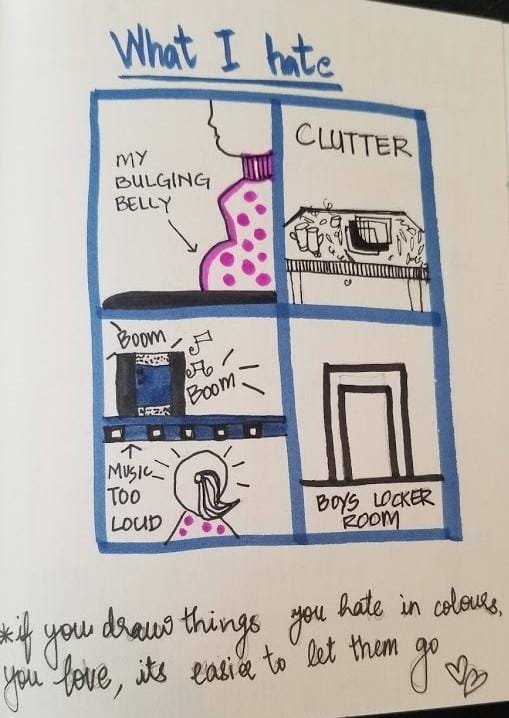 What I hate
MY
BULGING
BELLY
CLUTTER
BOOM
BOOM
MUSIC
TOO
LOUD
BOYS LOCKER
ROOM
*if you draw things you hate in colours,
you love, its easier to let them go